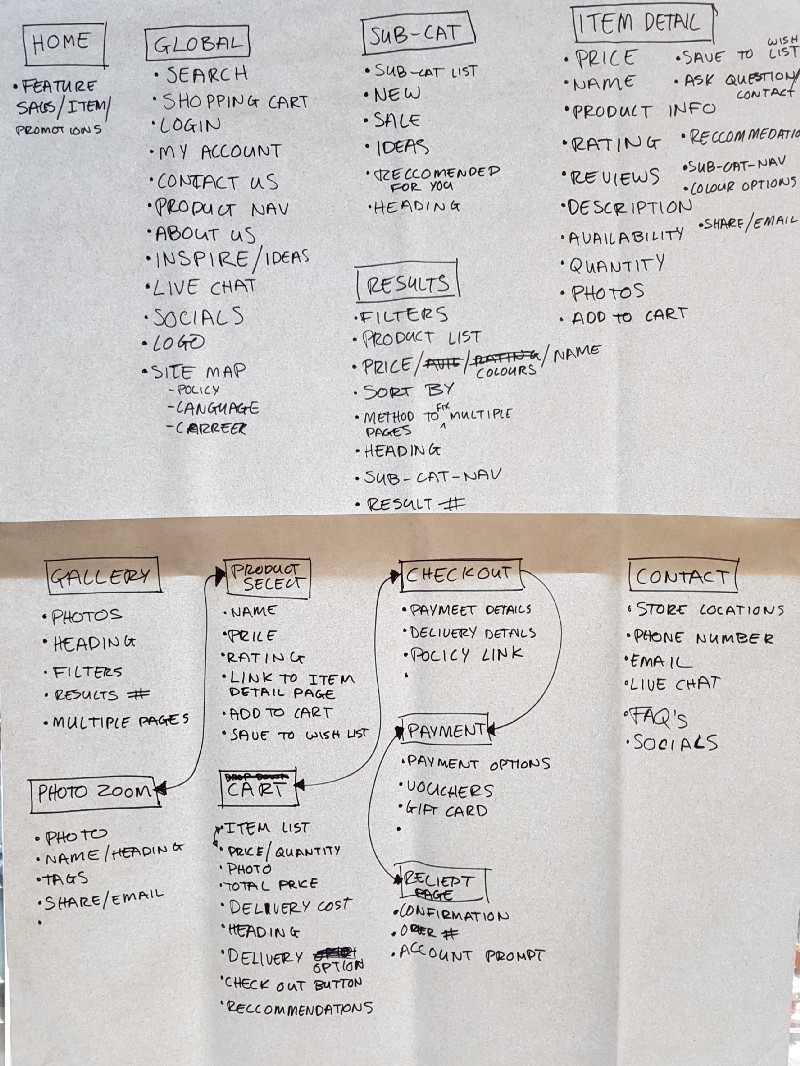 HOME
• FEATURE
SALES/ITEM/
PROMOTIONS
GLOBAL
• SEARCH
• SHOPPING CART
• LOGIN
• MY ACCOUNT
• CONTACT US
• PRODUCT NAV
• ABOUT US
• INSPIRE/IDEAS
• LIVE CHAT
• SOCIALS
• LOGO
• SITE MAP
- POLICY
- LANGUAGE
- CARREER
SUB-CAT
• SUB-CAT LIST
• NEW
• SALE
• IDEAS
• RECCOMENDED
FOR YOU
• HEADING
RESULTS
• FILTERS
• PRODUCT LIST
• PRICE/ / RATING / NAME
COLOURS
• SORT BY
• METHOD TO FIX MULTIPLE
PAGES
• HEADING
• SUB-CAT-NAV
• RESULT #
ITEM DETAIL
• PRICE
• NAME
• PRODUCT INFO
• RATING
• REVIEWS
• DESCRIPTION
• AVAILABILITY
• QUANTITY
• PHOTOS
• ADD TO CART
• SAVE TO WISH
LIST
• ASK QUESTION/
CONTACT
• RECCOMMEDATIO
• SUB-CAT-NAV
• COLOUR OPTIONS
• SHARE/EMAIL
GALLERY
• PHOTOS
• HEADING
• FILTERS
• RESULTS #
• MULTIPLE PAGES
PHOTO ZOOM
• PHOTO
• NAME/HEADING
• TAGS
• SHARE/EMAIL
•
PRODUCT
SELECT
• NAME
• PRICE
• RATING
• LINK TO ITEM
DETAIL PAGE
• ADD TO CART
• SAVE TO WISH LIST
DROP DOWN
CART
• ITEM LIST
• PRICE/QUANTITY
• PHOTO
• TOTAL PRICE
• DELIVERY COST
• HEADING
• DELIVERY
OPTION
• CHECK OUT BUTTON
• RECCOMMENDATIONS
CHECKOUT
• PAYMEET DETAILS
• DELIVERY DETAILS
• POLICY LINK
•
PAYMENT
• PAYMENT OPTIONS
• VOUCHERS
• GIFT CARD
•
RECIEPT
PAGE
• CONFIRMATION
• ORER #
• ACCOUNT PROMPT
CONTACT
• STORE LOCATIONS
• PHONE NUMBER
• EMAIL
• LIVE CHAT
• FAQ'S
• SOCIALS